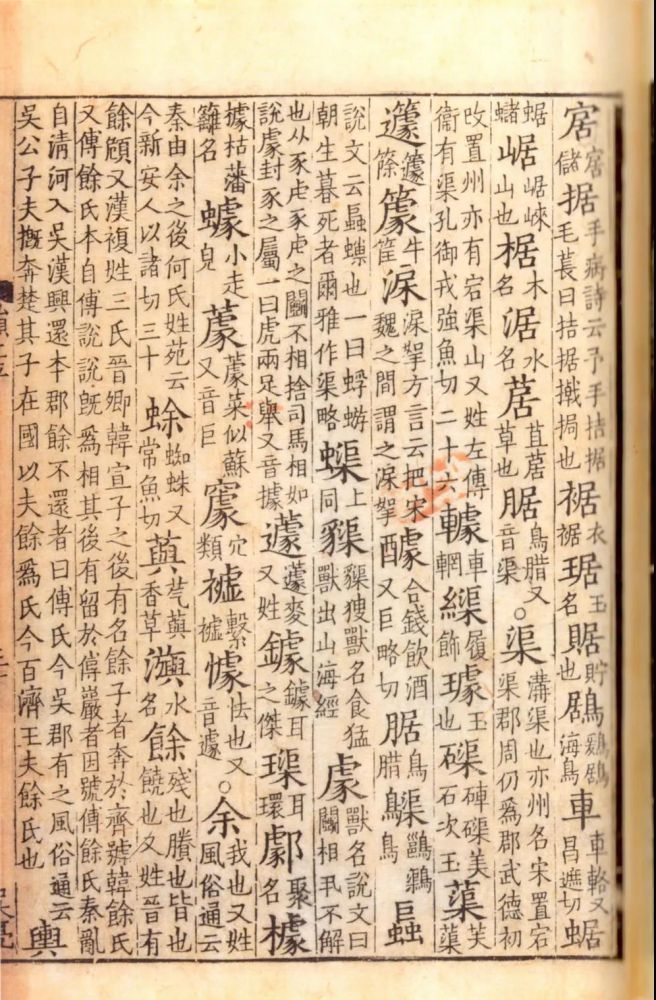 据手病詩云予手拮据毛萇曰拮据撠挶也裾衣裾琚玉名䝻貯也鶋鶢鶋海鳥車車輅又昌遮切蜛
蜛蝫崌崌崍山也椐木名涺水名草也腒鳥腊又音渠○渠溝渠也亦州名宋置宕渠郡周仍爲郡武德初
改置州亦有宕渠山又姓左傳衞有渠孔御戎強魚切二十六車輞履飾璩玉也磲硨磲美石次玉蕖芙蕖
籧籧篨牛筐淭淭挐方言云把宋魏之間謂之淭挐醵合錢飲酒又巨略切腒鳥腊鳥
說文云也一曰蜉蝣朝生暮死者爾雅作渠略上同獸名食猛獸出山海經豦獸名說文曰鬭相丮不解
也从豕虍豕虍之鬭不相捨司馬相如說豦封豕之屬一曰虎兩足舉又音據蘧蘧麥又姓鐻鐻耳之傑璖耳環聚名據
據枯藩籬名小走皃菜似蘇又音巨穴類繫懅怯也又音遽○余我也又姓風俗通云
秦由余之後何氏姓苑云今新安人以諸切三十蜍蜘蛛又常魚切香草水名餘殘也賸也皆也饒也又姓晉有
餘頠又漢複姓三氏晉卿韓宣子之後有名餘子者奔於齊號韓餘氏又傅餘氏本自傅說說旣爲相其後有留於傅巖者因號傅餘氏秦亂
自清河入吳漢興還本郡餘不還者曰傅氏今吳郡有之風俗通云吳公子夫摡奔楚其子在國以夫餘爲氏今百濟王夫餘氏也輿